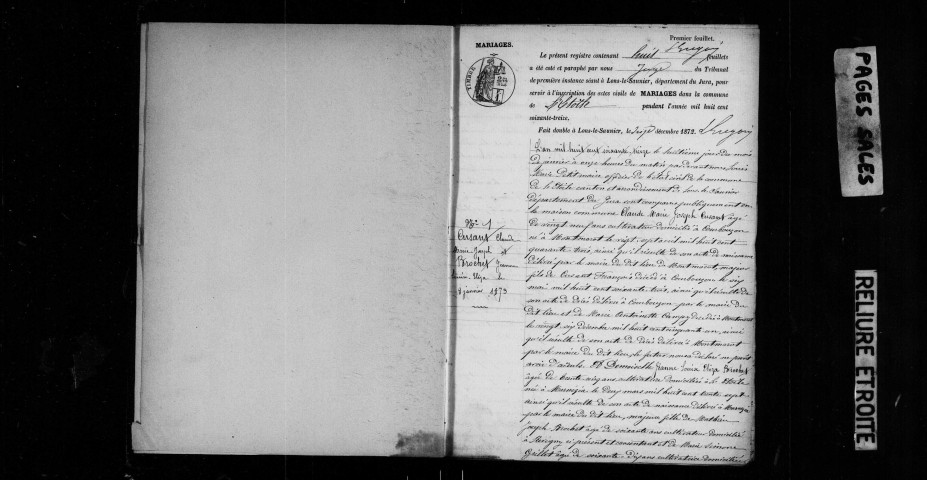 Premier feuillet.
MARIAGES.
Le présent registre contenant huit feuillets
a été coté et paraphé par nous Juge du Tribunal
de première instance séant à Lons-le-Saunier, département du Jura, pour
servir à l'inscription des actes civils de MARIAGES dans la commune
de l'Etoile pendant l'année mil huit cent
soixante-treize.
Fait double à Lons-le-Saunier, le décembre 1872.
TIMBRE
L'an mil huit cent soixante treize le huitième jour du mois
de janvier à onze heures du matin par devant nous Louis
Marie Petit maire officier de l'état civil de la commune
de l'Etoile canton et arrondissement de Lons le Saunier
département du Jura sont comparus publiquement en
la maison commune Claude Marie Joseph Cusant âgé
de vingt neuf ans cultivateur domicilié à
né à Montmorot le vingt sept avril mil huit cent
quarante trois, ainsi qu'il résulte de son acte de naissance
délivré par le maire du dit lieu de Montmorot, majeur
fils de Cusant François décédé à le six
mai mil huit cent soixante trois, ainsi qu'il résulte de
son acte de décès délivré à par le maire du
dit lieu et de Marie Antoinette décédée à Montmorot
le vingt six décembre mil huit cent cinquante un, ainsi
qu'il résulte de son acte de décès délivré à Montmorot
par le maire du dit lieu, le futur nous déclare ne point
avoir d'aïeuls. Et Demoiselle Jeanne Louise Eliza Brochet
âgée de trente cinq ans cultivatrice domiciliée à l'Etoile
née à le deux mars mil huit cent trente sept
ainsi qu'il résulte de son acte de naissance délivré à
par le maire du dit lieu, majeure fille de Mathieu
Joseph Brochet âgé de soixante ans cultivateur domicilié
à ci présent et consentant et de Marie
âgée de soixante dix ans cultivatrice domiciliée
No 1
Cusant Claude
Marie Joseph et
Brochet Jeanne
Louise Eliza le
8 janvier 1873
PAGES SALES
RELIURE ETROITE